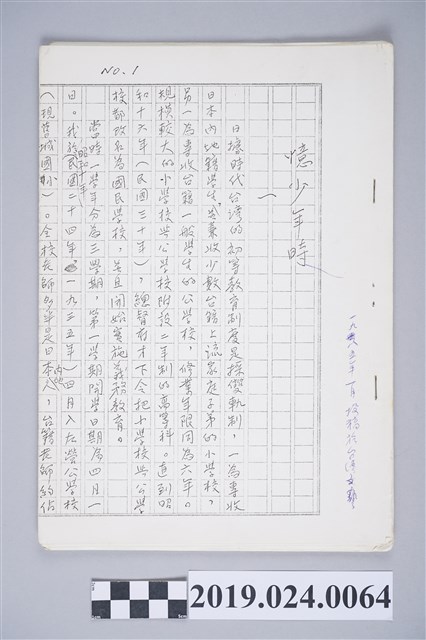 NO. 1
憶少年時
一
日據時代台灣的初等教育制度是採雙軌制,一為專收
日本內地籍學生,並兼收少數台籍上流家庭子弟的小學校,
另一為專收台籍一般學生的公學校,修業年限同為六年。
規模較大的小學校與公學校附設二年制的高等科。直到昭
和十六年(民國三十年),總督府才下令把小學校與公學
校都改名為國民學校,並且開始實施義務教育。
當時一學年分為三學期,第一學期開學日期為四月一
日。我於昭和十年(民國二十四年,一九三五年)四月入左營公學校
(現舊城國小)。全校老師多半是日本內地人,台籍老師約佔
年一月投稿於台灣文藝
2019.024.0064